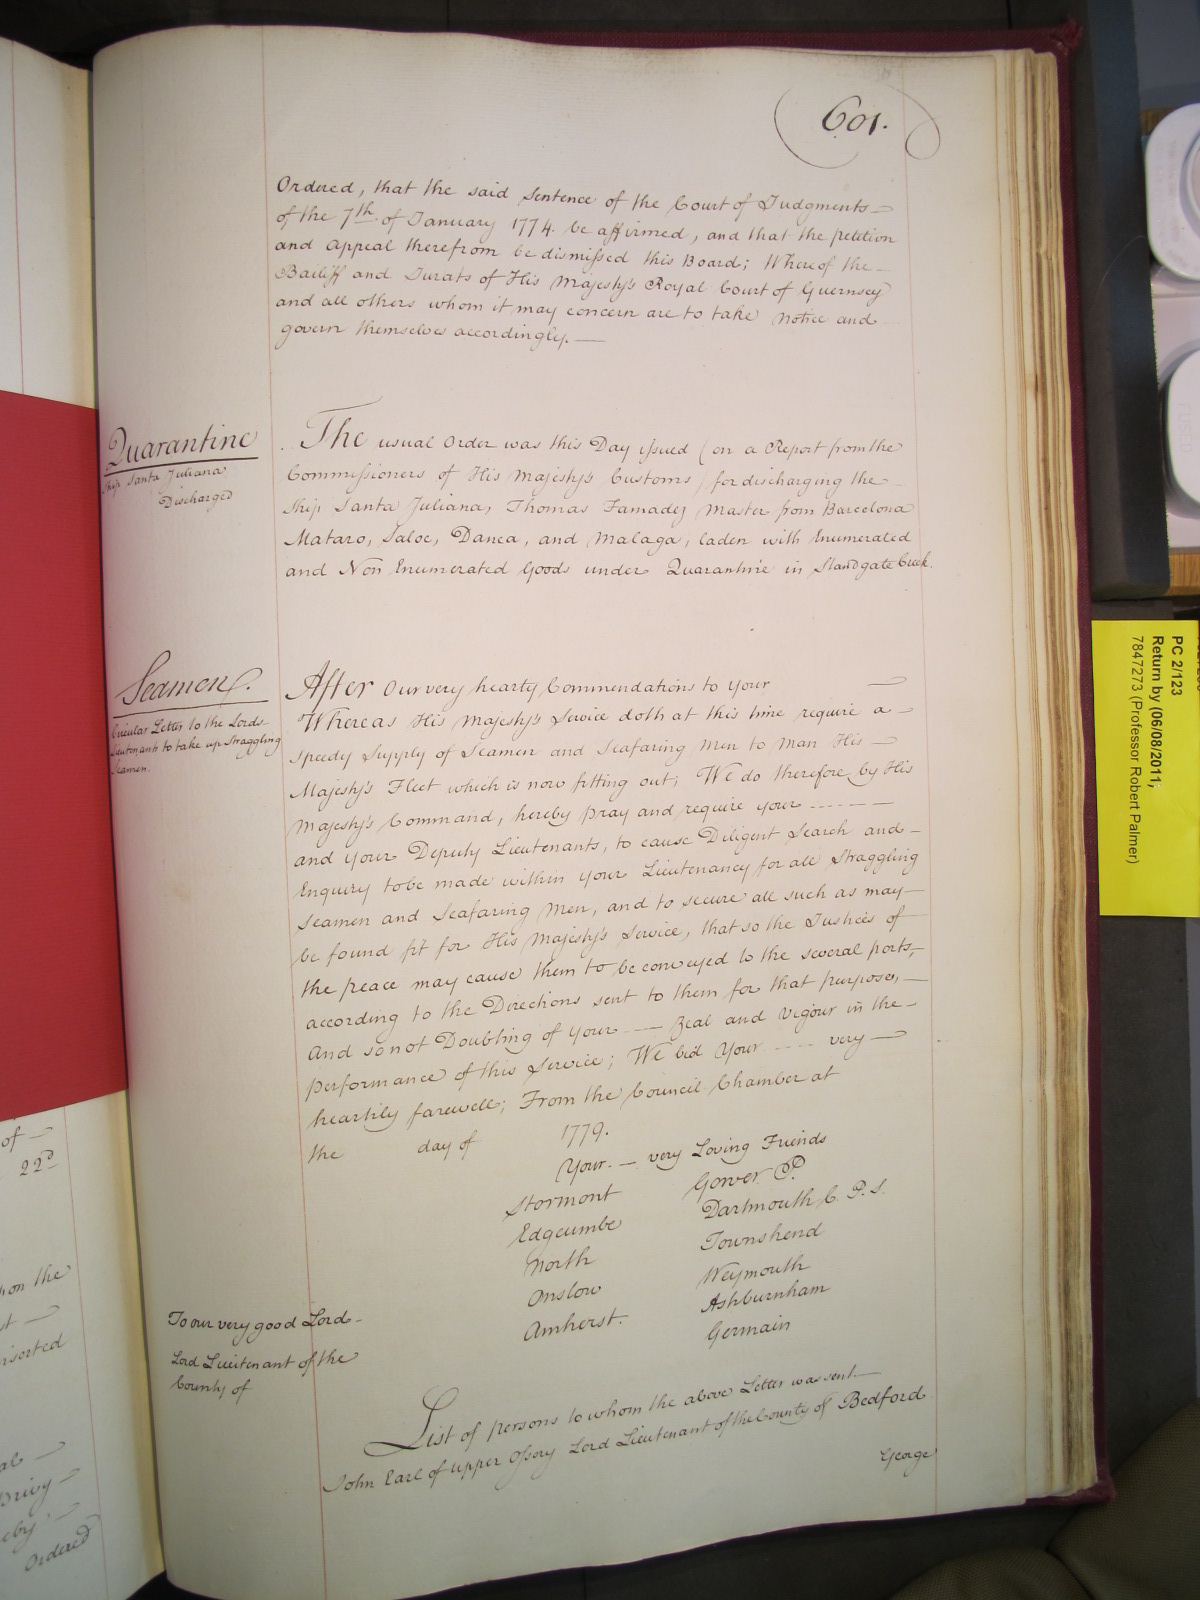 601.
Ordered, that the said Sentence of the Court of Judgments
of the 7th of January 1774. be affirmed, and that the petition
and Appeal therefrom be dismissed this Board; Whereof the
Bailiff and Jurats of His Majesty's Royal Court of Guernsey
and all others whom it may concern are to take Notice and
govern themselves accordingly.
Quarantine
Ship Santa Juliana
Discharged
The usual Order was this Day issued (on a Report from the
Commissioners of His Majesty's Customs) for discharging the
Ship Santa Juliana, Thomas Famadez Master from Barcelona
Mataro, Saloe, Danea, and Malaga, laden with Enumerated
and Non Enumerated Goods under Quarantine in Standgate Creek.
Seamen.
Circular Letter to the Lords
Lieutenants to take up straggling
Seamen.
After Our very hearty Commendations to Your
Whereas His Majesty's Service doth at this time require a
speedy supply of Seamen and Seafaring Men to Man His
Majesty's Fleet which is now fitting out; We do therefore by His
Majesty's Command, hereby pray and require your
and your Deputy Lieutenants, to cause Diligent Search and
Enquiry to be made within your Lieutenancy for all Straggling
Seamen and Seafaring Men, and to secure all such as may
be found fit for His Majesty's Service, that so the Justices of
the peace may cause them to be conveyed to the several ports,
according to the Directions sent to them for that purpose,
And so not Doubting of your ---- Zeal and Vigour in the
performance of this Service; We bid Your ---- very
heartily farewell; From the Council Chamber at
the day of 1779.
Your. — very Loving Friends
Stormont Gower P
Edgcumbe Dartmouth C. P. S.
North Townshend
Onslow Weymouth
Amherst. Ashburnham
Germain
To our very good Lord
Lord Lieutenant of the
County of
List of persons to whom the above Letter was sent
John Earl of upper Ossory Lord Lieutenant of the County of Bedford
George
of
22d
on the
Ordered
PC 2/123
Return by (06/08/2011;
7847273 (Professor Robert Palmer)